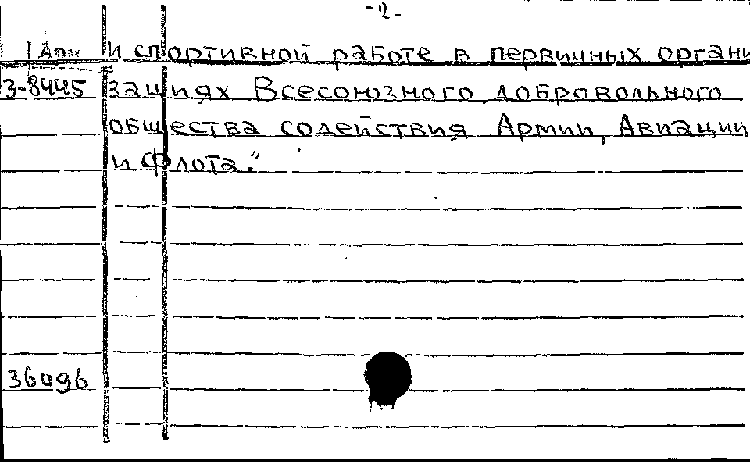 -2-
1 Апл и спортивной работе в первичных органи
3-8445 зациях Всесоюзного добровольного
общества содействия Армии, Авиации
и флота."
36096